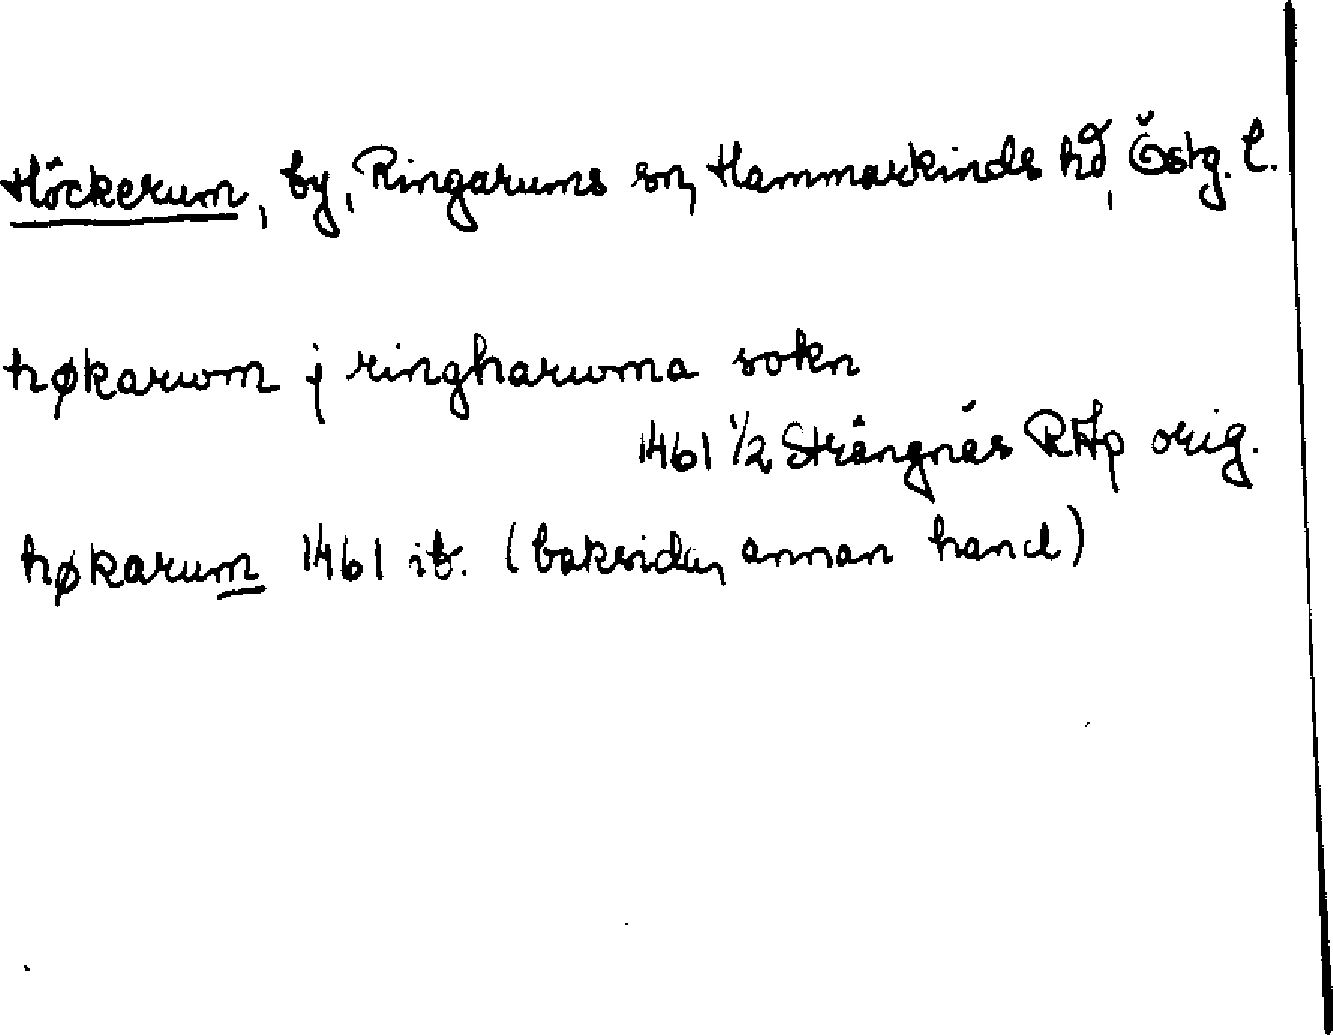 Höckerum, by, Ringarums sn, Hammarkinds hd, Östg. l.
høkarwm j ringharwma sokn
1461 1/2 Strängnäs RAp orig.
høkarum 1461 ib. (baksidan, annan hand)